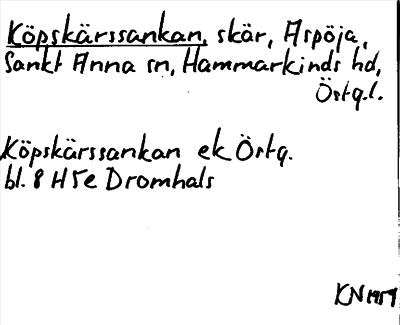 Köpskärssankan, skär, Aspöja,
Sankt Anna sn, Hammarkinds hd,
Östg.l.
Köpskärssankan ek Östg.
bl. 8 H 5e Dromhals
KN 1959